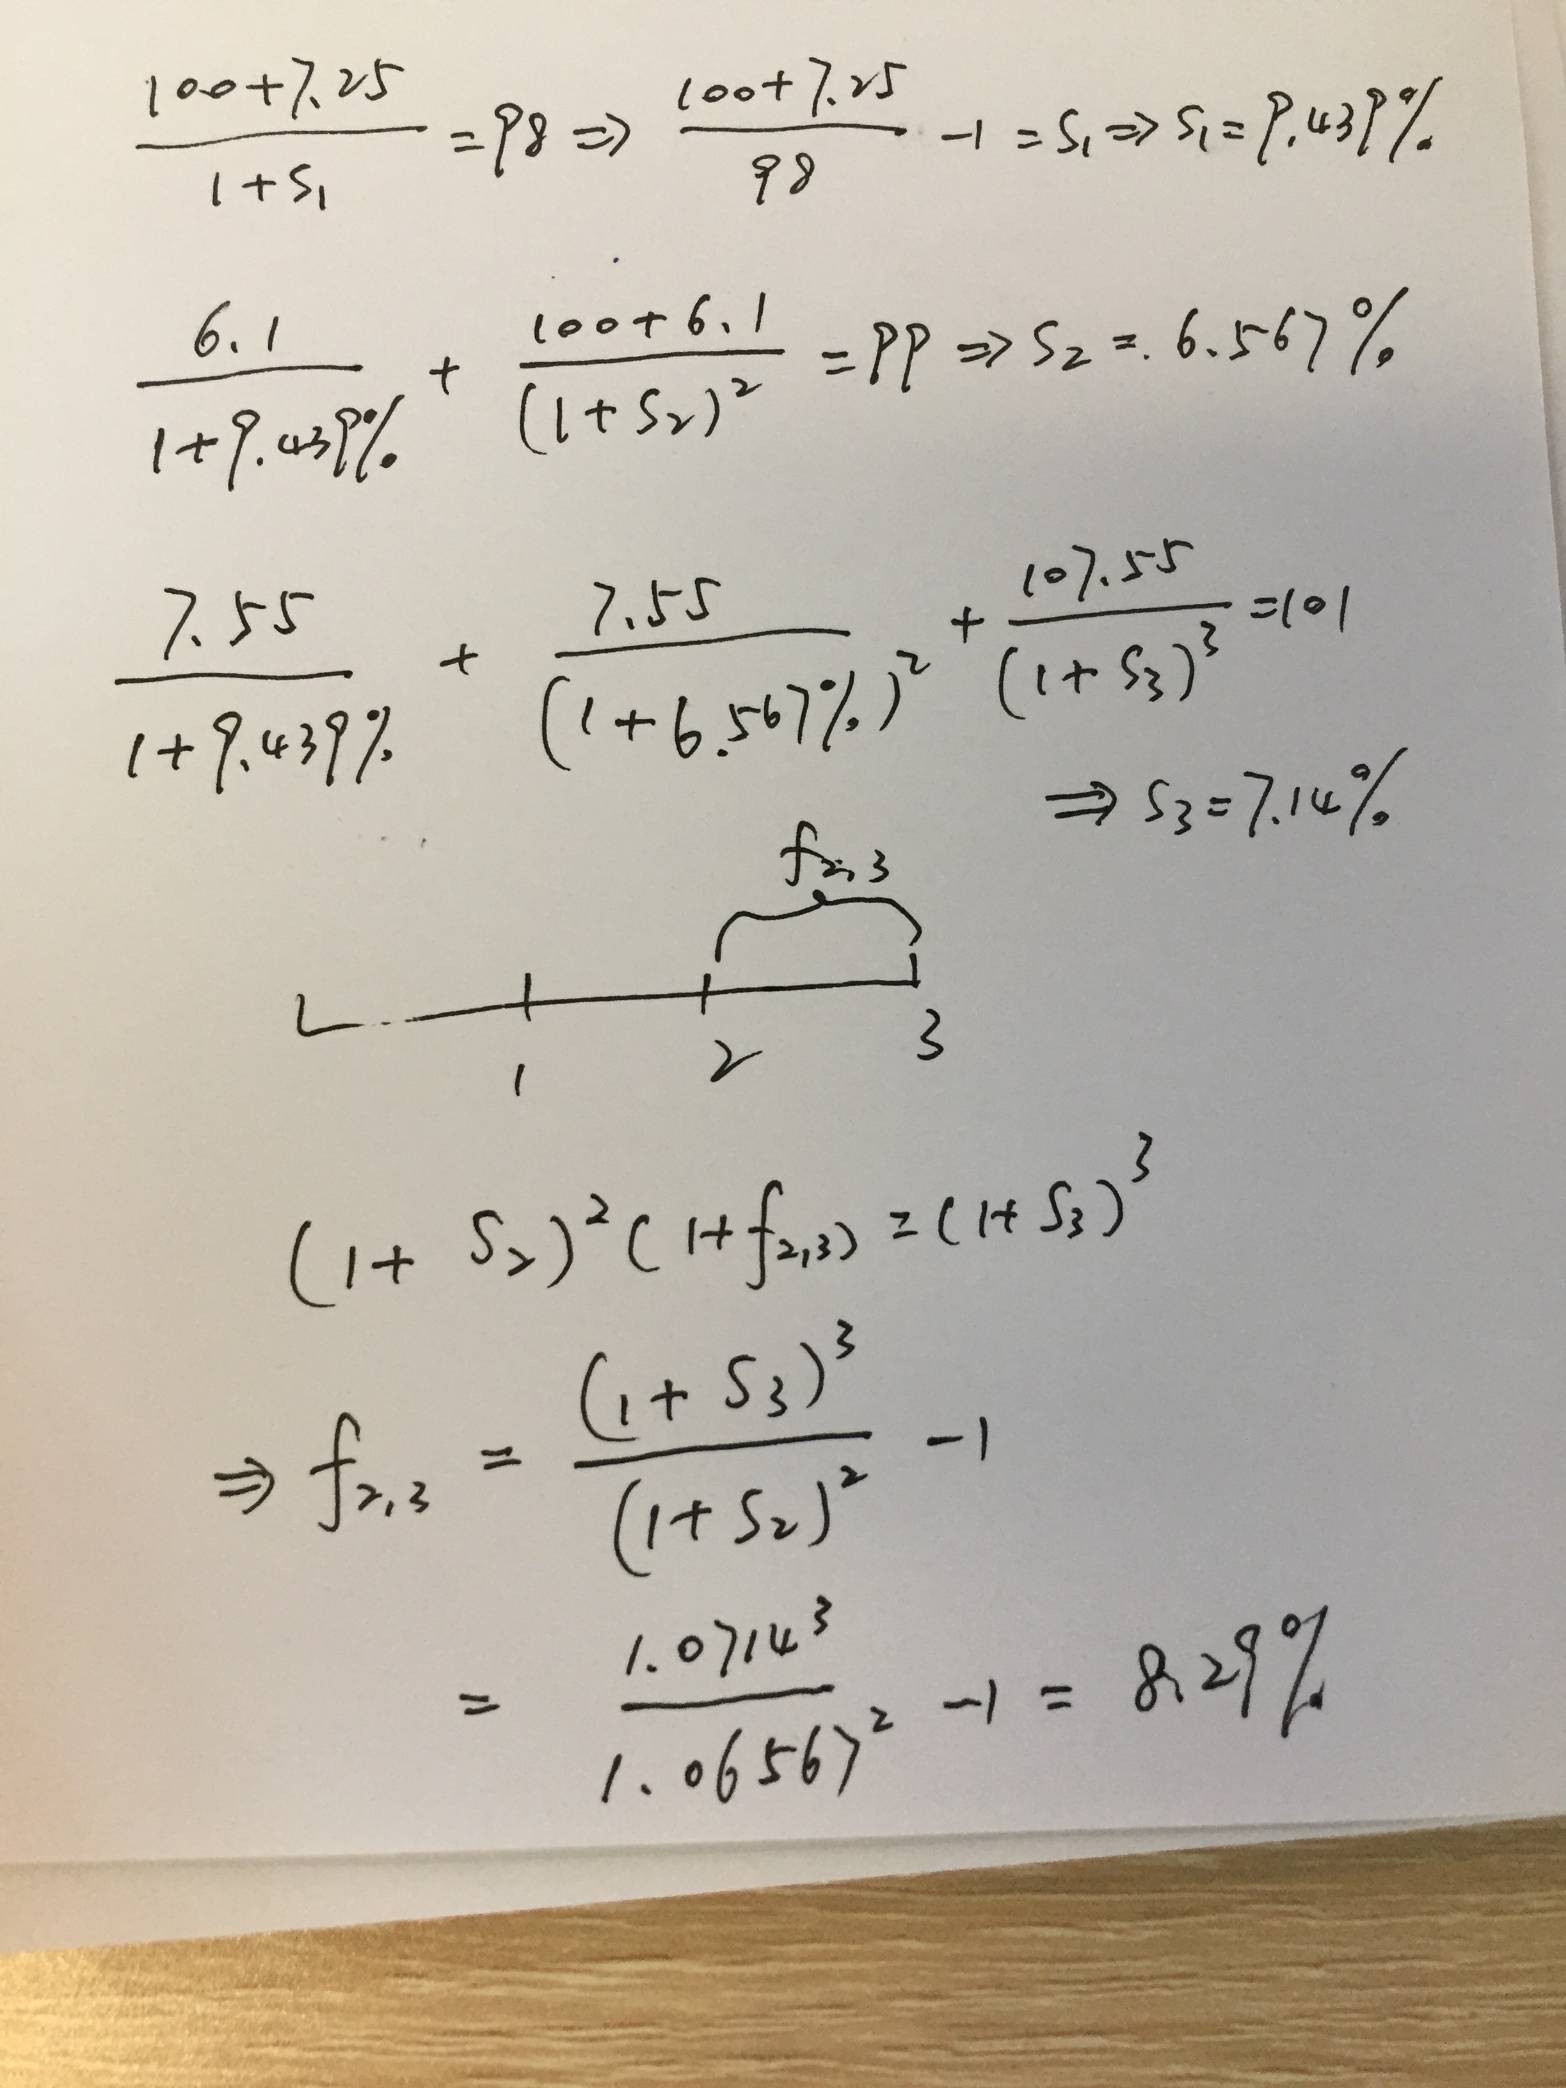 (100+7.25)/(1+S₁) = 98 ⇒ (100+7.25)/98 -1 = S₁ ⇒ S₁ = 9.439%
6.1/(1+9.439%) + (100+6.1)/(1+S₂)² = 99 ⇒ S₂ = 6.567%
7.55/(1+9.439%) + 7.55/(1+6.567%)² + 107.55/(1+S₃)³ = 101
⇒ S₃ = 7.14%
f₂,₃
1 2 3
(1+S₂)²(1+f₂,₃) = (1+S₃)³
⇒ f₂,₃ = (1+S₃)³/(1+S₂)² -1
= 1.0714³/1.06567² -1 = 8.29%